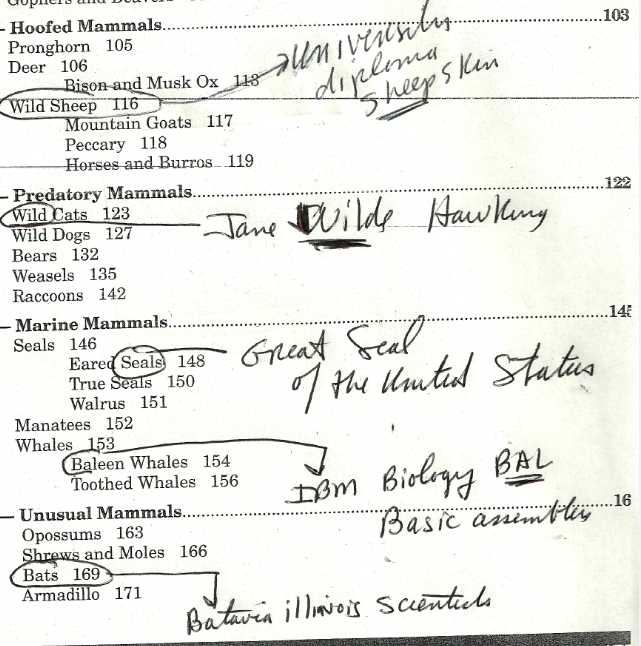 Gophers and Beavers
– Hoofed Mammals........103
Pronghorn 105
university
diploma
sheepskin
Deer 106
Bison and Musk Ox 113
Wild Sheep 116
Mountain Goats 117
Peccary 118
Horses and Burros 119
– Predatory Mammals........122
Wild Cats 123
Jane Wilde Hawking
Wild Dogs 127
Bears 132
Weasels 135
Raccoons 142
– Marine Mammals........145
Seals 146
Great Seal
of the United States
Eared Seals 148
True Seals 150
Walrus 151
Manatees 152
Whales 153
Baleen Whales 154
IBM Biology BAL
Basic assembler
Toothed Whales 156
– Unusual Mammals........16
Opossums 163
Shrews and Moles 166
Bats 169
Batavia illinois scientists
Armadillo 171